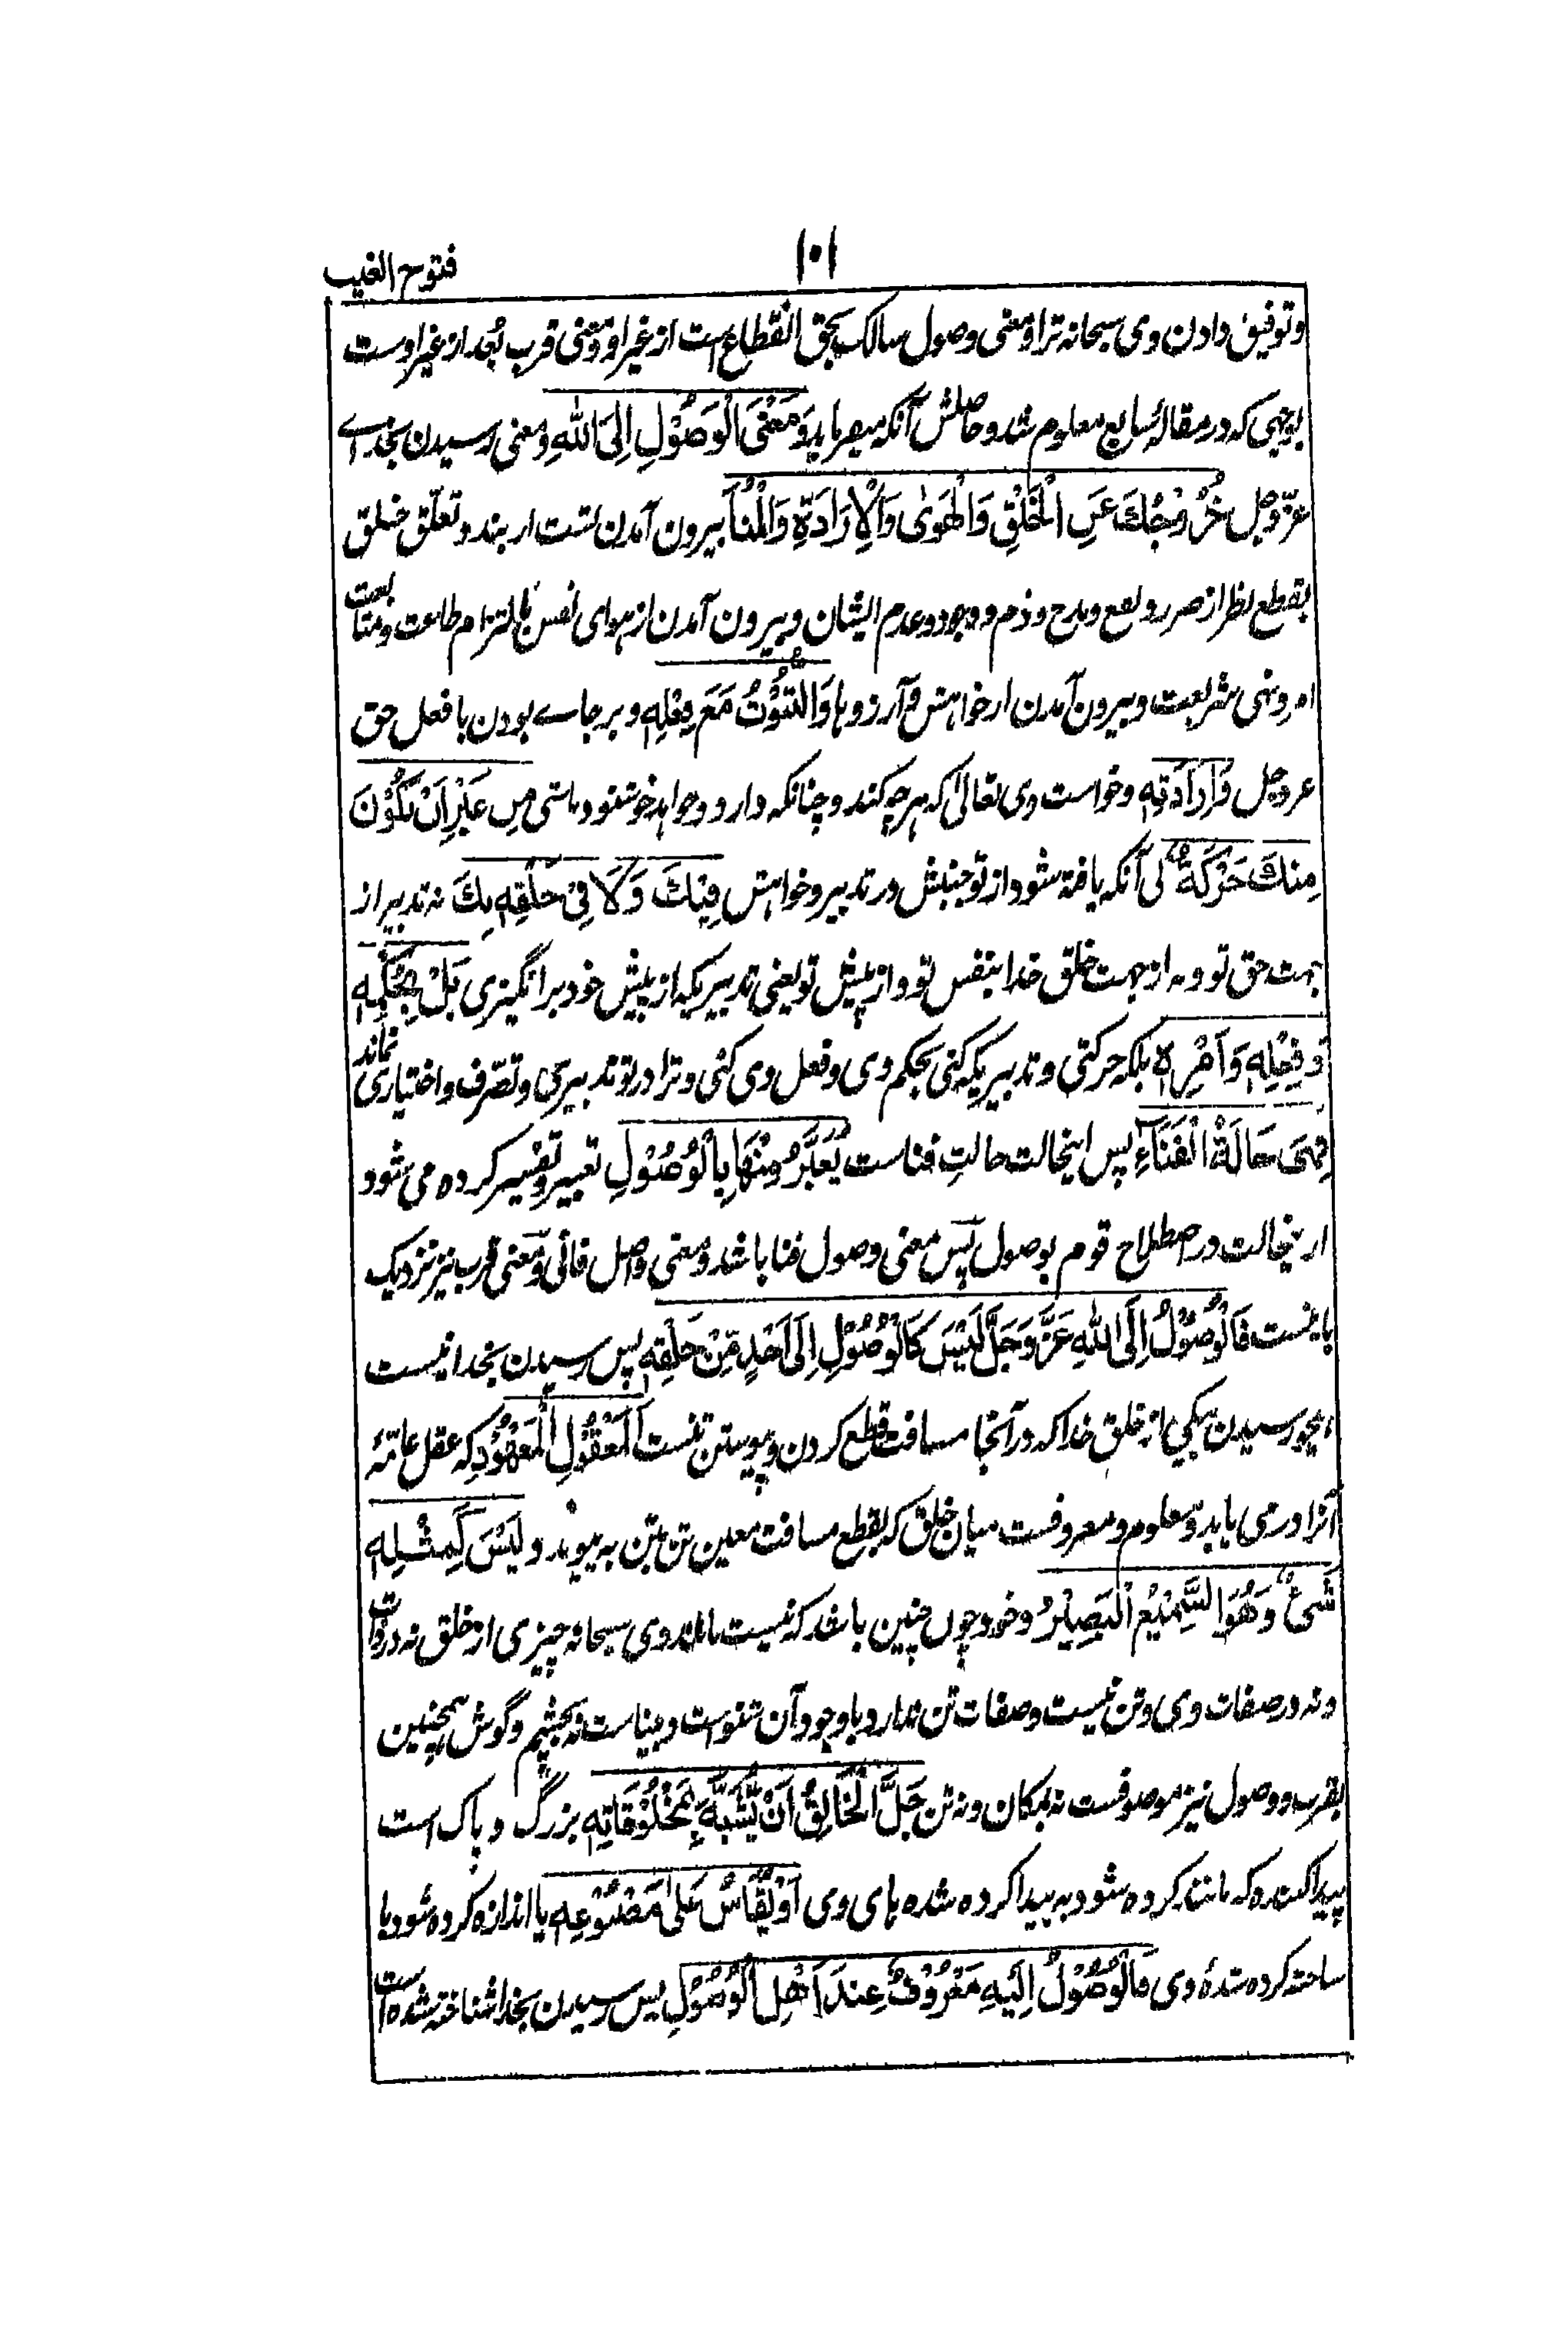 فتوح الغیب
۱۰۱
و توفیق دادن وی سبحانه ترا و معنی وصول سالک بحق انقطاع است از غیر او و معنی قرب بُعد از غیر اوست
بوجهی که در مقالهٔ سابع معلوم شد و حاصلش آنکه میفرماید وَمَعْنَی الْوُصُوْلِ اِلَی اللّٰهِ و معنی رسیدن بخدا ے
عزّ و جل خُرُوْجُكَ عَنِ الْخَلْقِ وَالْهَوٰی وَالْاِرَادَةِ وَالْمُنٰا بیرون آمدن تست از بند و تعلّق خلق
بقطع نظر از ضرر و نفع و مدح و ذم و وجود و عدم ایشان و بیرون آمدن از هوای نفس بالتزام طاعت و متابعت
امر و نهی شریعت و بیرون آمدن از خواهش و آرزوها وَالثُّبُوْتُ مَعَ فِعْلِهٖ و بر جاے بودن با فعل حق
عز و جل وَاِرَادَتِهٖ و خواست وی تعالیٰ که هر چه کند و چنانکه دارد و خواهد خوشنود باشی مِنْ غَیْرِ اَنْ یَّكُوْنَ
مِنْكَ حَرَكَةٌ بی آنکه یافته شود از تو جنبش در تدبیر و خواهش فِیْكَ وَلَا فِیْ خَلْقِهٖ بِكَ نه تدبیر از
جهت حق تو و نه از جهت خلق خدا بنفس تو و از پیش تو یعنی تدبیریکه از پیش خود برانگیزی بَلْ بِحُكْمِهٖ
وَفِعْلِهٖ وَاَمْرِهٖ بلکه حرکتی و تدبیریکه کنی بحکم وی و فعل وی کنی و ترا در تو تدبیری و تصرّف و اختیاری نماند
فَهِیَ حَالَةُ الْفَنَآءِ پس اینحالت حالتِ فناست یُعَبَّرُ مِنْهَا بِالْوُصُوْلِ تعبیر و تفسیر کرده می شود
از ینحالت در اصطلاح قوم بوصول پس معنی وصول فنا باشد و معنی واصل فانی و معنی قرب نیز نزدیک
باینست فَالْوُصُوْلُ اِلَی اللّٰهِ عَزَّ وَجَلَّ لَیْسَ كَالْوُصُوْلِ اِلٰی اَحَدٍ مِّنْ خَلْقِهٖ پس رسیدن بخدا نیست
همچو رسیدن بیکی از خلق خدا که در آنجا مسافت قطع کردن و پیوستن تنست اَلْمَعْقُوْلِ الْمَعْهُوْدِ که عقل عامّهٔ
آنرا درمی یابد و معلوم و معروفست میان خلق که بقطع مسافت معین تن بتن به پیوندد و لَیْسَ كَمِثْلِهٖ
شَیْءٌ وَهُوَ السَّمِیْعُ الْبَصِیْرُ و خود چون چنین باشد که نیست مانند وی سبحانه چیزی از خلق نه در ذات
و نه در صفات وی و تن نیست و صفات تن ندارد و با وجود آن شنواست و بیناست نه بچشم و گوش همچنین
بقرب و وصول نیز موصوفست نه بمکان و نه تن جَلَّ الْخَالِقُ اَنْ یُّشَبَّهَ بِمَخْلُوْقَاتِهٖ بزرگ و پاک است
پیدا کننده که مانند کرده شود به پیدا کرده شده های وی اَوْ یُقَاسُ عَلٰی مَصْنُوْعِهٖ یا اندازه کرده شود با
ساخته کرده شدهٔ وی فَالْوُصُوْلُ اِلَیْهِ مَعْرُوْفٌ عِنْدَ اَهْلِ الْوُصُوْلِ پس رسیدن بخدا شناخته شده است